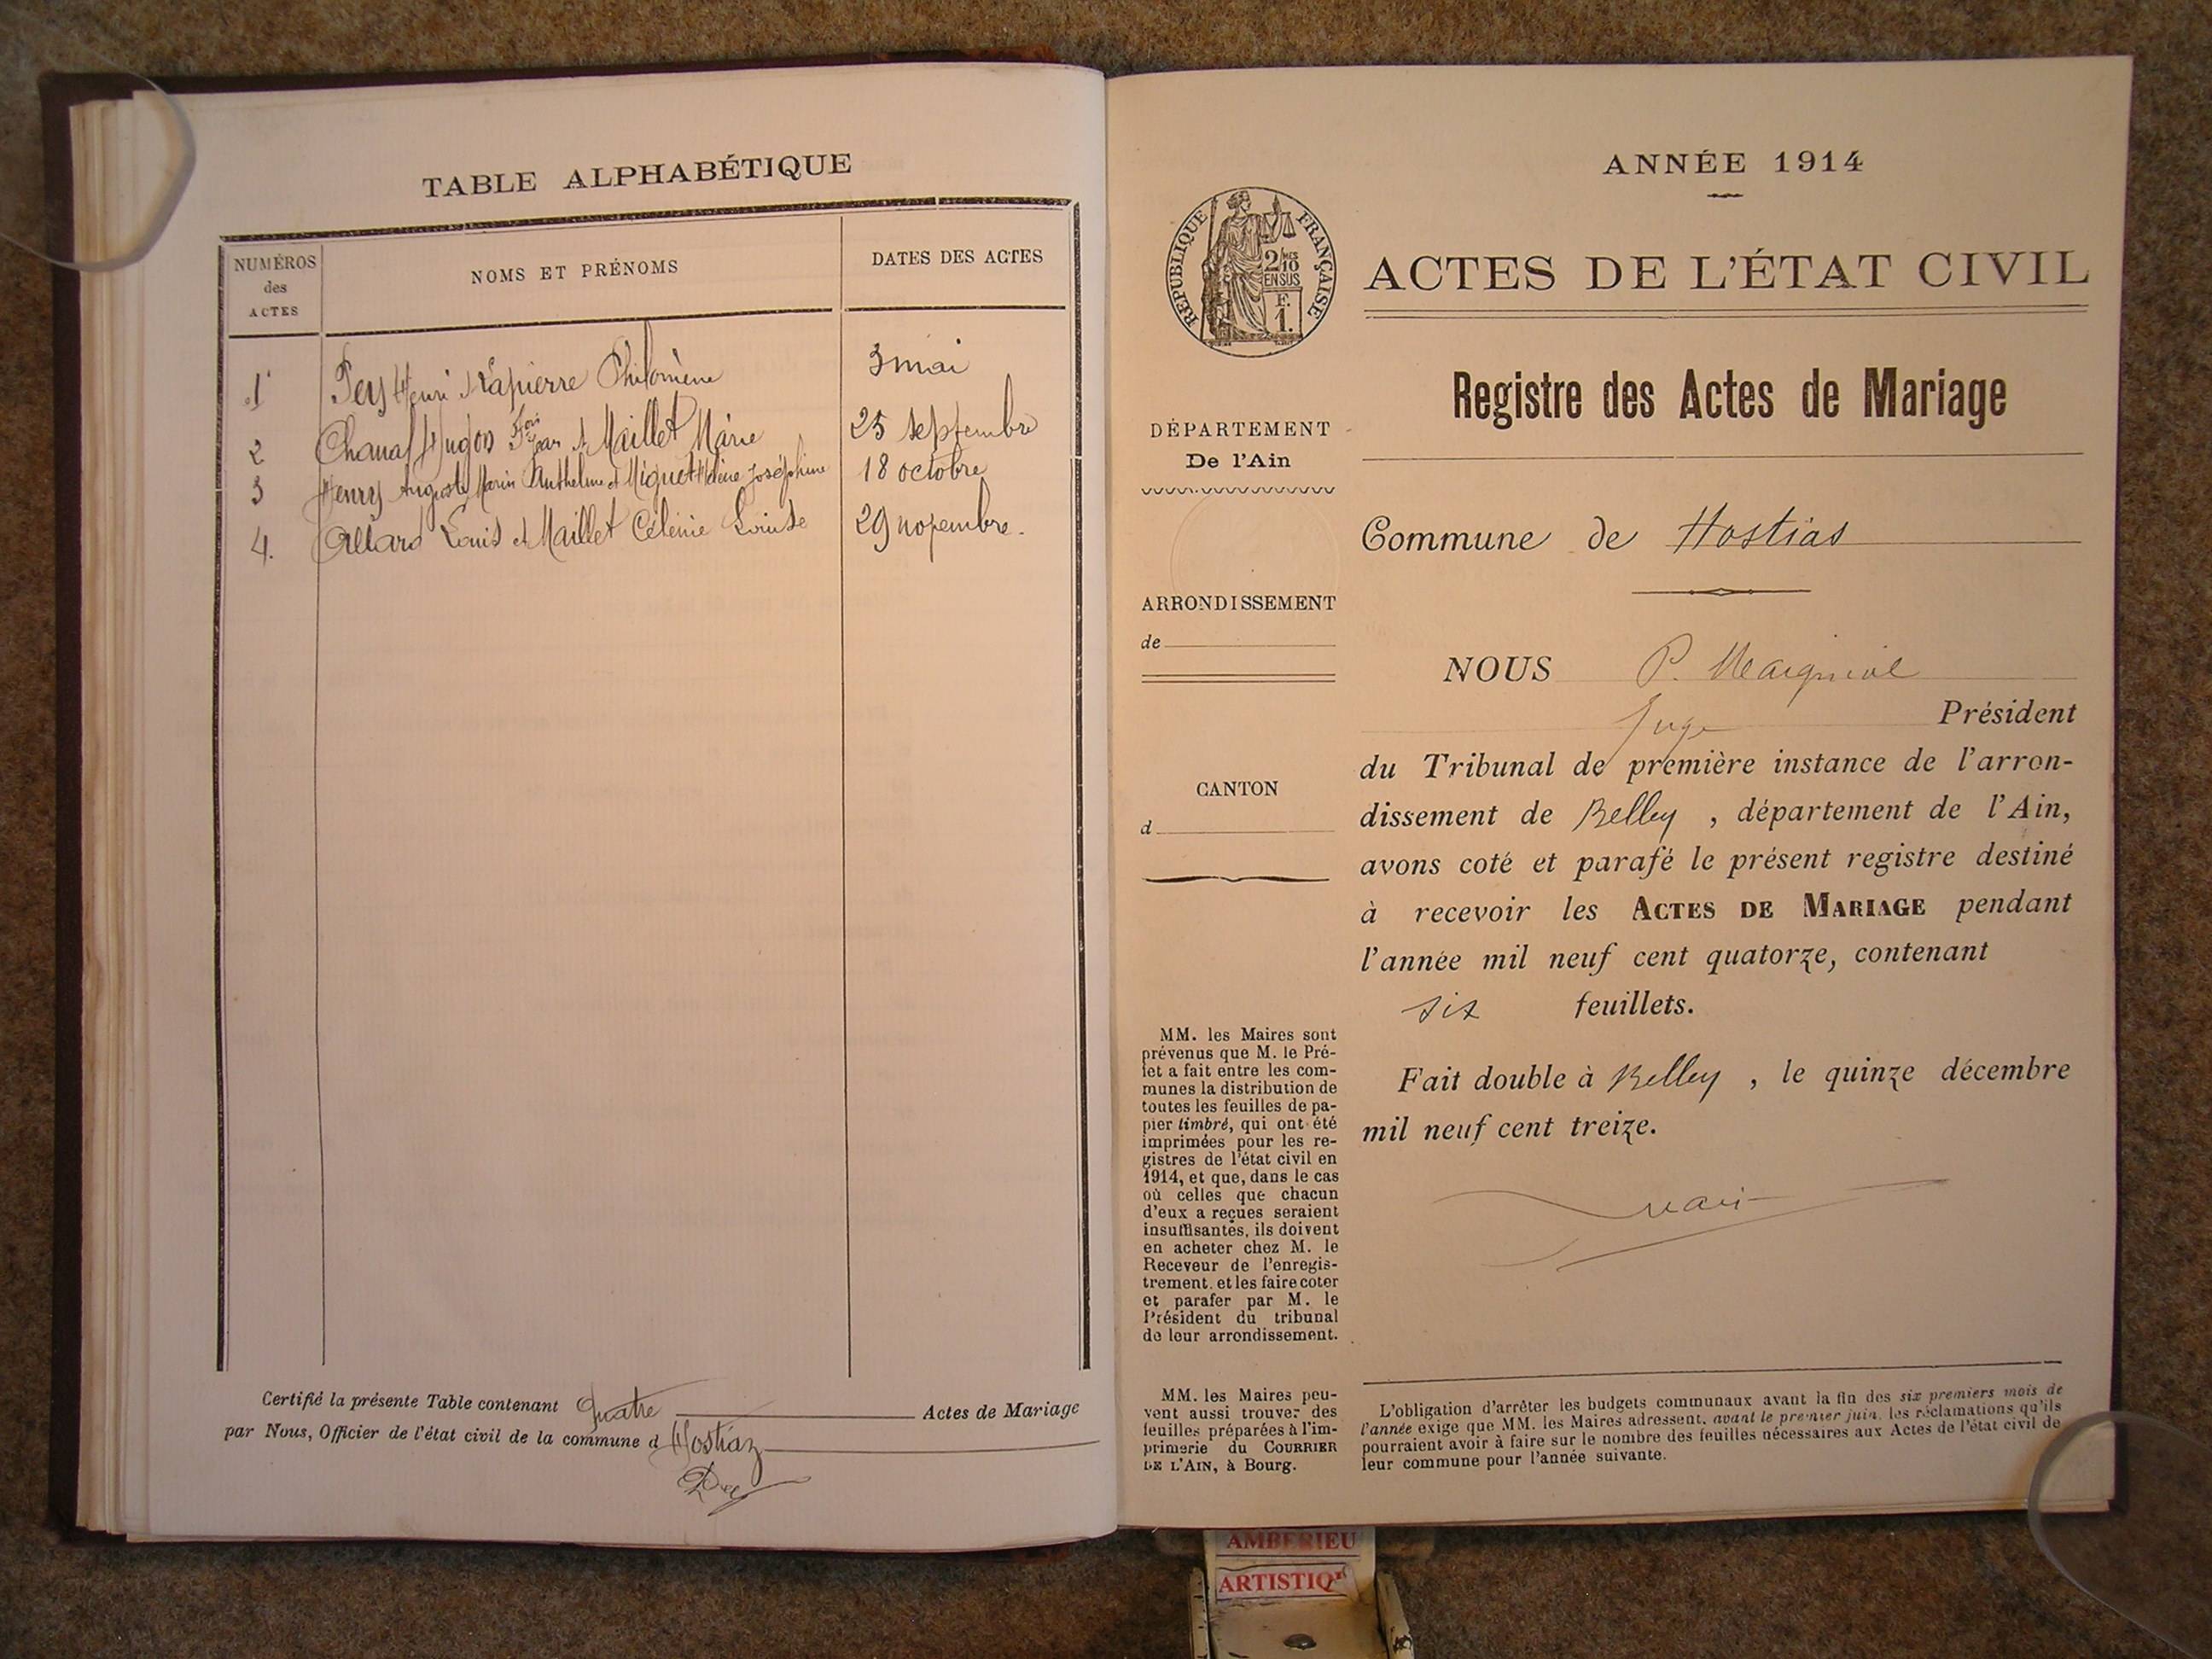 TABLE ALPHABÉTIQUE
NUMÉROS
des
ACTES
NOMS ET PRÉNOMS
DATES DES ACTES
1 Pey Henri et Lapierre Philomène 3 mai
2 Hugon Jean et Maillet Marie 25 septembre
3 Henry Auguste Marin Anthelme et Miguet Hélène Joséphine 18 octobre
4. Allard Louis et Maillet Célénie Louise 29 novembre.
Certifié la présente Table contenant Quatre Actes de Mariage
par Nous, Officier de l'état civil de la commune d Hostiaz
ANNÉE 1914
RÉPUBLIQUE FRANÇAISE
2/10 MES
EN SUS
F.
1.
ACTES DE L'ÉTAT CIVIL
Registre des Actes de Mariage
DÉPARTEMENT
De l'Ain
Commune de Hostias
ARRONDISSEMENT
de
CANTON
d
NOUS P.
Juge Président
du Tribunal de première instance de l'arron-
dissement de Belley , département de l'Ain,
avons coté et parafé le présent registre destiné
à recevoir les ACTES DE MARIAGE pendant
l'année mil neuf cent quatorze, contenant
six feuillets.
Fait double à Belley , le quinze décembre
mil neuf cent treize.
MM. les Maires sont
prévenus que M. le Pré-
fet a fait entre les com-
munes la distribution de
toutes les feuilles de pa-
pier timbré, qui ont été
imprimées pour les re-
gistres de l'état civil en
1914, et que, dans le cas
où celles que chacun
d'eux a reçues seraient
insuffisantes, ils doivent
en acheter chez M. le
Receveur de l'enregis-
trement, et les faire coter
et parafer par M. le
Président du tribunal
de leur arrondissement.
MM. les Maires peu-
vent aussi trouver des
feuilles préparées à l'im-
primerie du COURRIER
DE L'AIN, à Bourg.
L'obligation d'arrêter les budgets communaux avant la fin des six premiers mois de
l'année exige que MM. les Maires adressent, avant le premier juin, les réclamations qu'ils
pourraient avoir à faire sur le nombre des feuilles nécessaires aux Actes de l'état civil de
leur commune pour l'année suivante.
AMBERIEU
ARTISTIQ